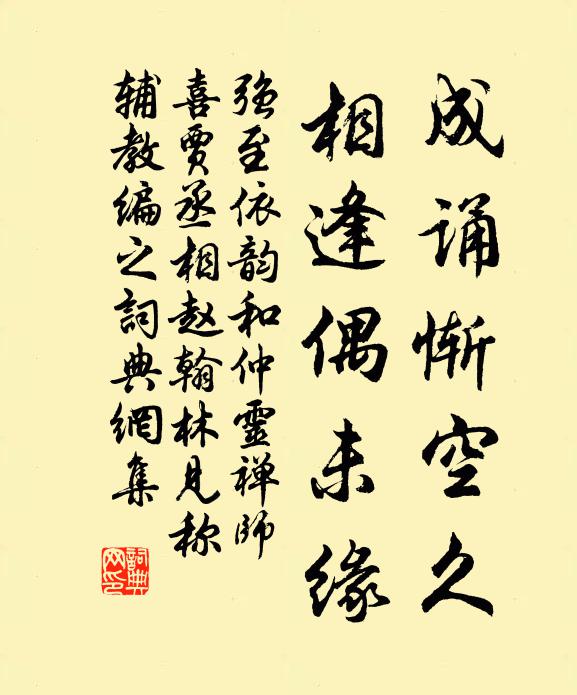 成诵惭空久
相逢偶未缘
强至依韵和仲靈禅师
喜贾丞相赵翰林见称
辅教编之詞典網集
詞典
网印